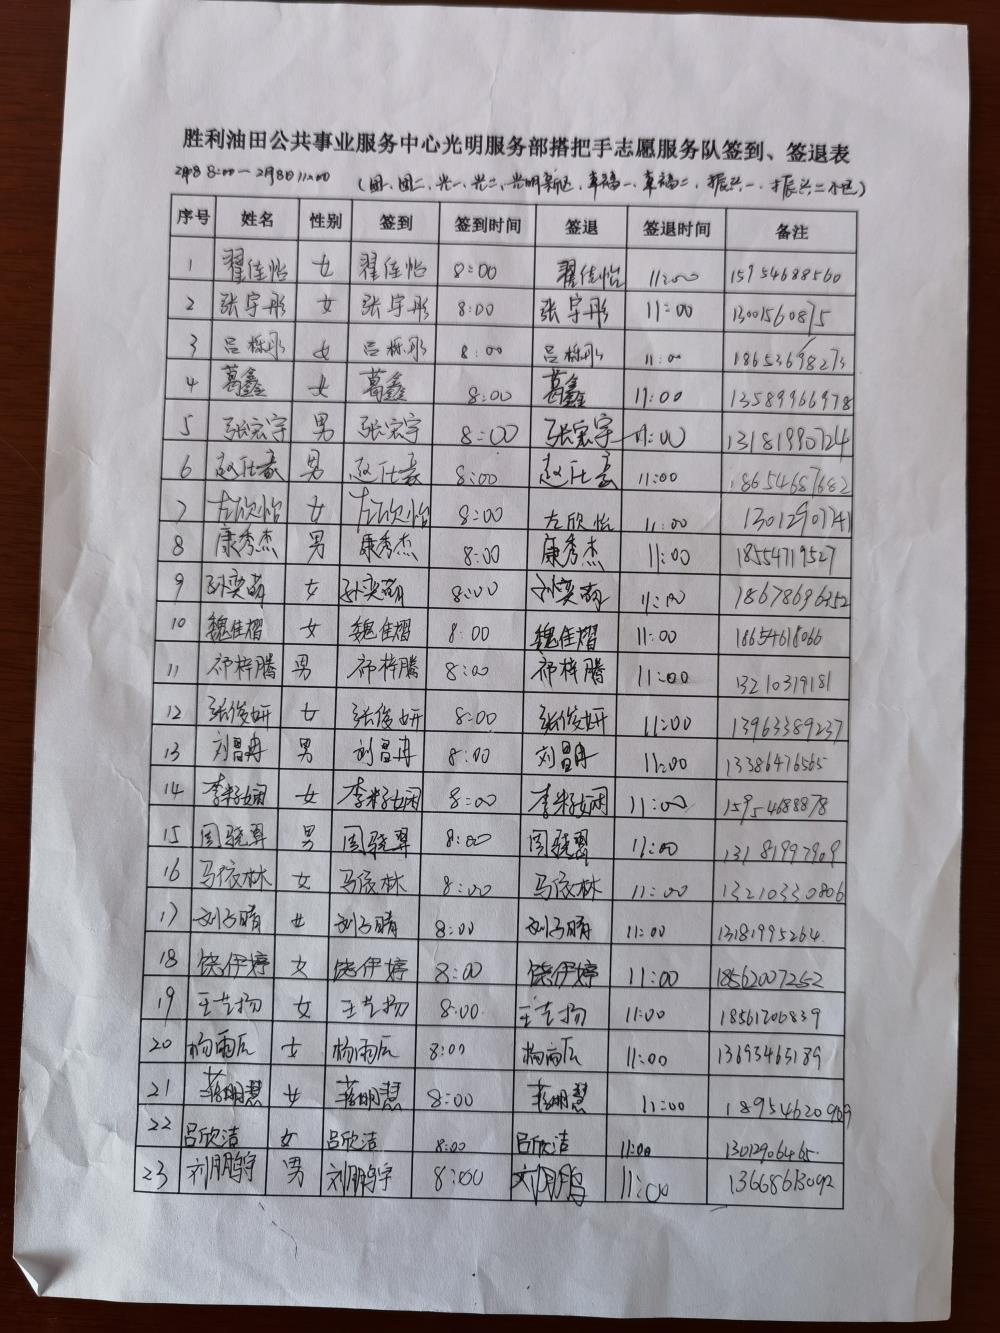 胜利油田公共事业服务中心光明服务部搭把手志愿服务队签到、签退表
2月8日 8:00一2月8日11:00 (团一、团二、光一、光二、光明新区、幸福一、幸福二、振兴一、振兴二小区)
序号 姓名 性别 签到 签到时间 签退 签退时间 备注
1 翟佳怡 女 翟佳怡 8:00 翟佳怡 11:00 15954688560
2 张宇彤 女 张宇彤 8:00 张宇彤 11:00 13001560875
3 吕栎彤 女 吕栎彤 8:00 吕栎彤 11:00 18653698273
4 葛鑫 女 葛鑫 8:00 葛鑫 11:00 13589966978
5 张宏宇 男 张宏宇 8:00 张宏宇 11:00 13181990724
6 赵仕豪 男 赵仕豪 8:00 赵仕豪 11:00 18654687682
7 左欣怡 女 左欣怡 8:00 左欣怡 11:00 13012907741
8 康秀杰 男 康秀杰 8:00 康秀杰 11:00 18554719527
9 孙奕萌 女 孙奕萌 8:00 孙奕萌 11:00 18678696252
10 魏佳熠 女 魏佳熠 8:00 魏佳熠 11:00 18654618066
11 祁梓腾 男 祁梓腾 8:00 祁梓腾 11:00 13210319181
12 张俊妍 女 张俊妍 8:00 张俊妍 11:00 13963389237
13 刘昌冉 男 刘昌冉 8:00 刘昌冉 11:00 13386476565
14 李籽娴 女 李籽娴 8:00 李籽娴 11:00 15954688878
15 周骁羿 男 周骁羿 8:00 周骁羿 11:00 13181997909
16 马依林 女 马依林 8:00 马依林 11:00 13210330806
17 刘子晴 女 刘子晴 8:00 刘子晴 11:00 13181995264
18 饶伊婷 女 饶伊婷 8:00 饶伊婷 11:00 18562007252
19 女 8:00 11:00 18561206839
20 杨雨辰 女 杨雨辰 8:00 杨雨辰 11:00 13693465189
21 蒋明慧 女 蒋明慧 8:00 蒋明慧 11:00 18954620909
22 吕欣洁 女 吕欣洁 8:00 吕欣洁 11:00 13012906465
23 刘鹏宇 男 刘鹏宇 8:00 11:00 13668613092